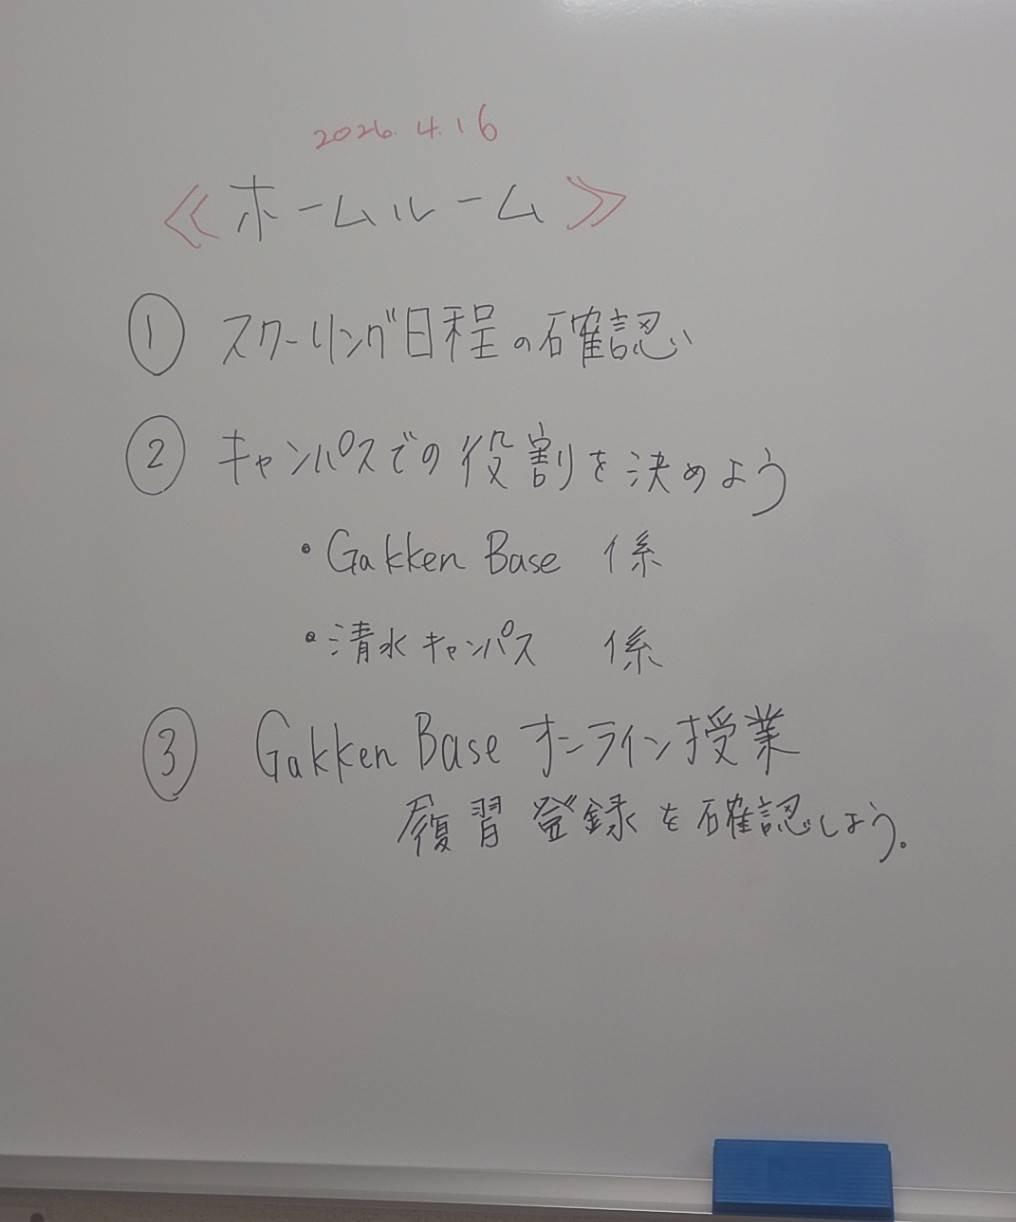 2026.4.16
≪ホームルーム≫
① スクーリング日程の確認
② キャンパスでの役割を決めよう
・Gakken Base 係
・清水キャンパス 係
③ Gakken Base オンライン授業
履習登録を確認しよう。